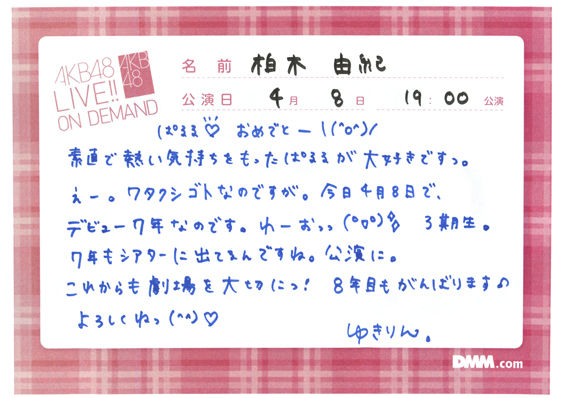 AKB48
LIVE!!
ON DEMAND
AKB
48
名前 柏木 由紀
公演日 4月 8日 19:00 公演
ぱるる♡ おめでとー\(^o^)/
素直で熱い気持ちをもったぱるるが大好きですっ。
えー。ワタクシゴトなのですが。今日4月8日で、
デビュー7年なのです。わーおっっ(°▽°) 3期生。
7年もシアターに出てるんですね。公演に。
これからも劇場を大切にっ! 8年目もがんばりますの
よろしくねっ(^^)♡
ゆきりん。
DMM.com